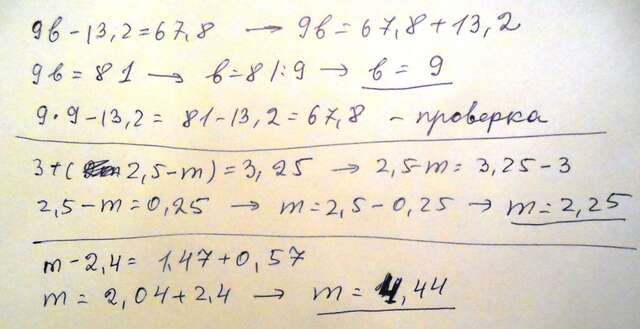 9в - 13,2 = 67,8 → 9в = 67,8 + 13,2
9в = 81 → в = 81:9 → в = 9
9 · 9 - 13,2 = 81 - 13,2 = 67,8 - проверка
3 + ( 2,5 - m) = 3,25 → 2,5 - m = 3,25 - 3
2,5 - m = 0,25 → m = 2,5 - 0,25 → m = 2,25
m - 2,4 = 1,47 + 0,57
m = 2,04 + 2,4 → m = 4,44